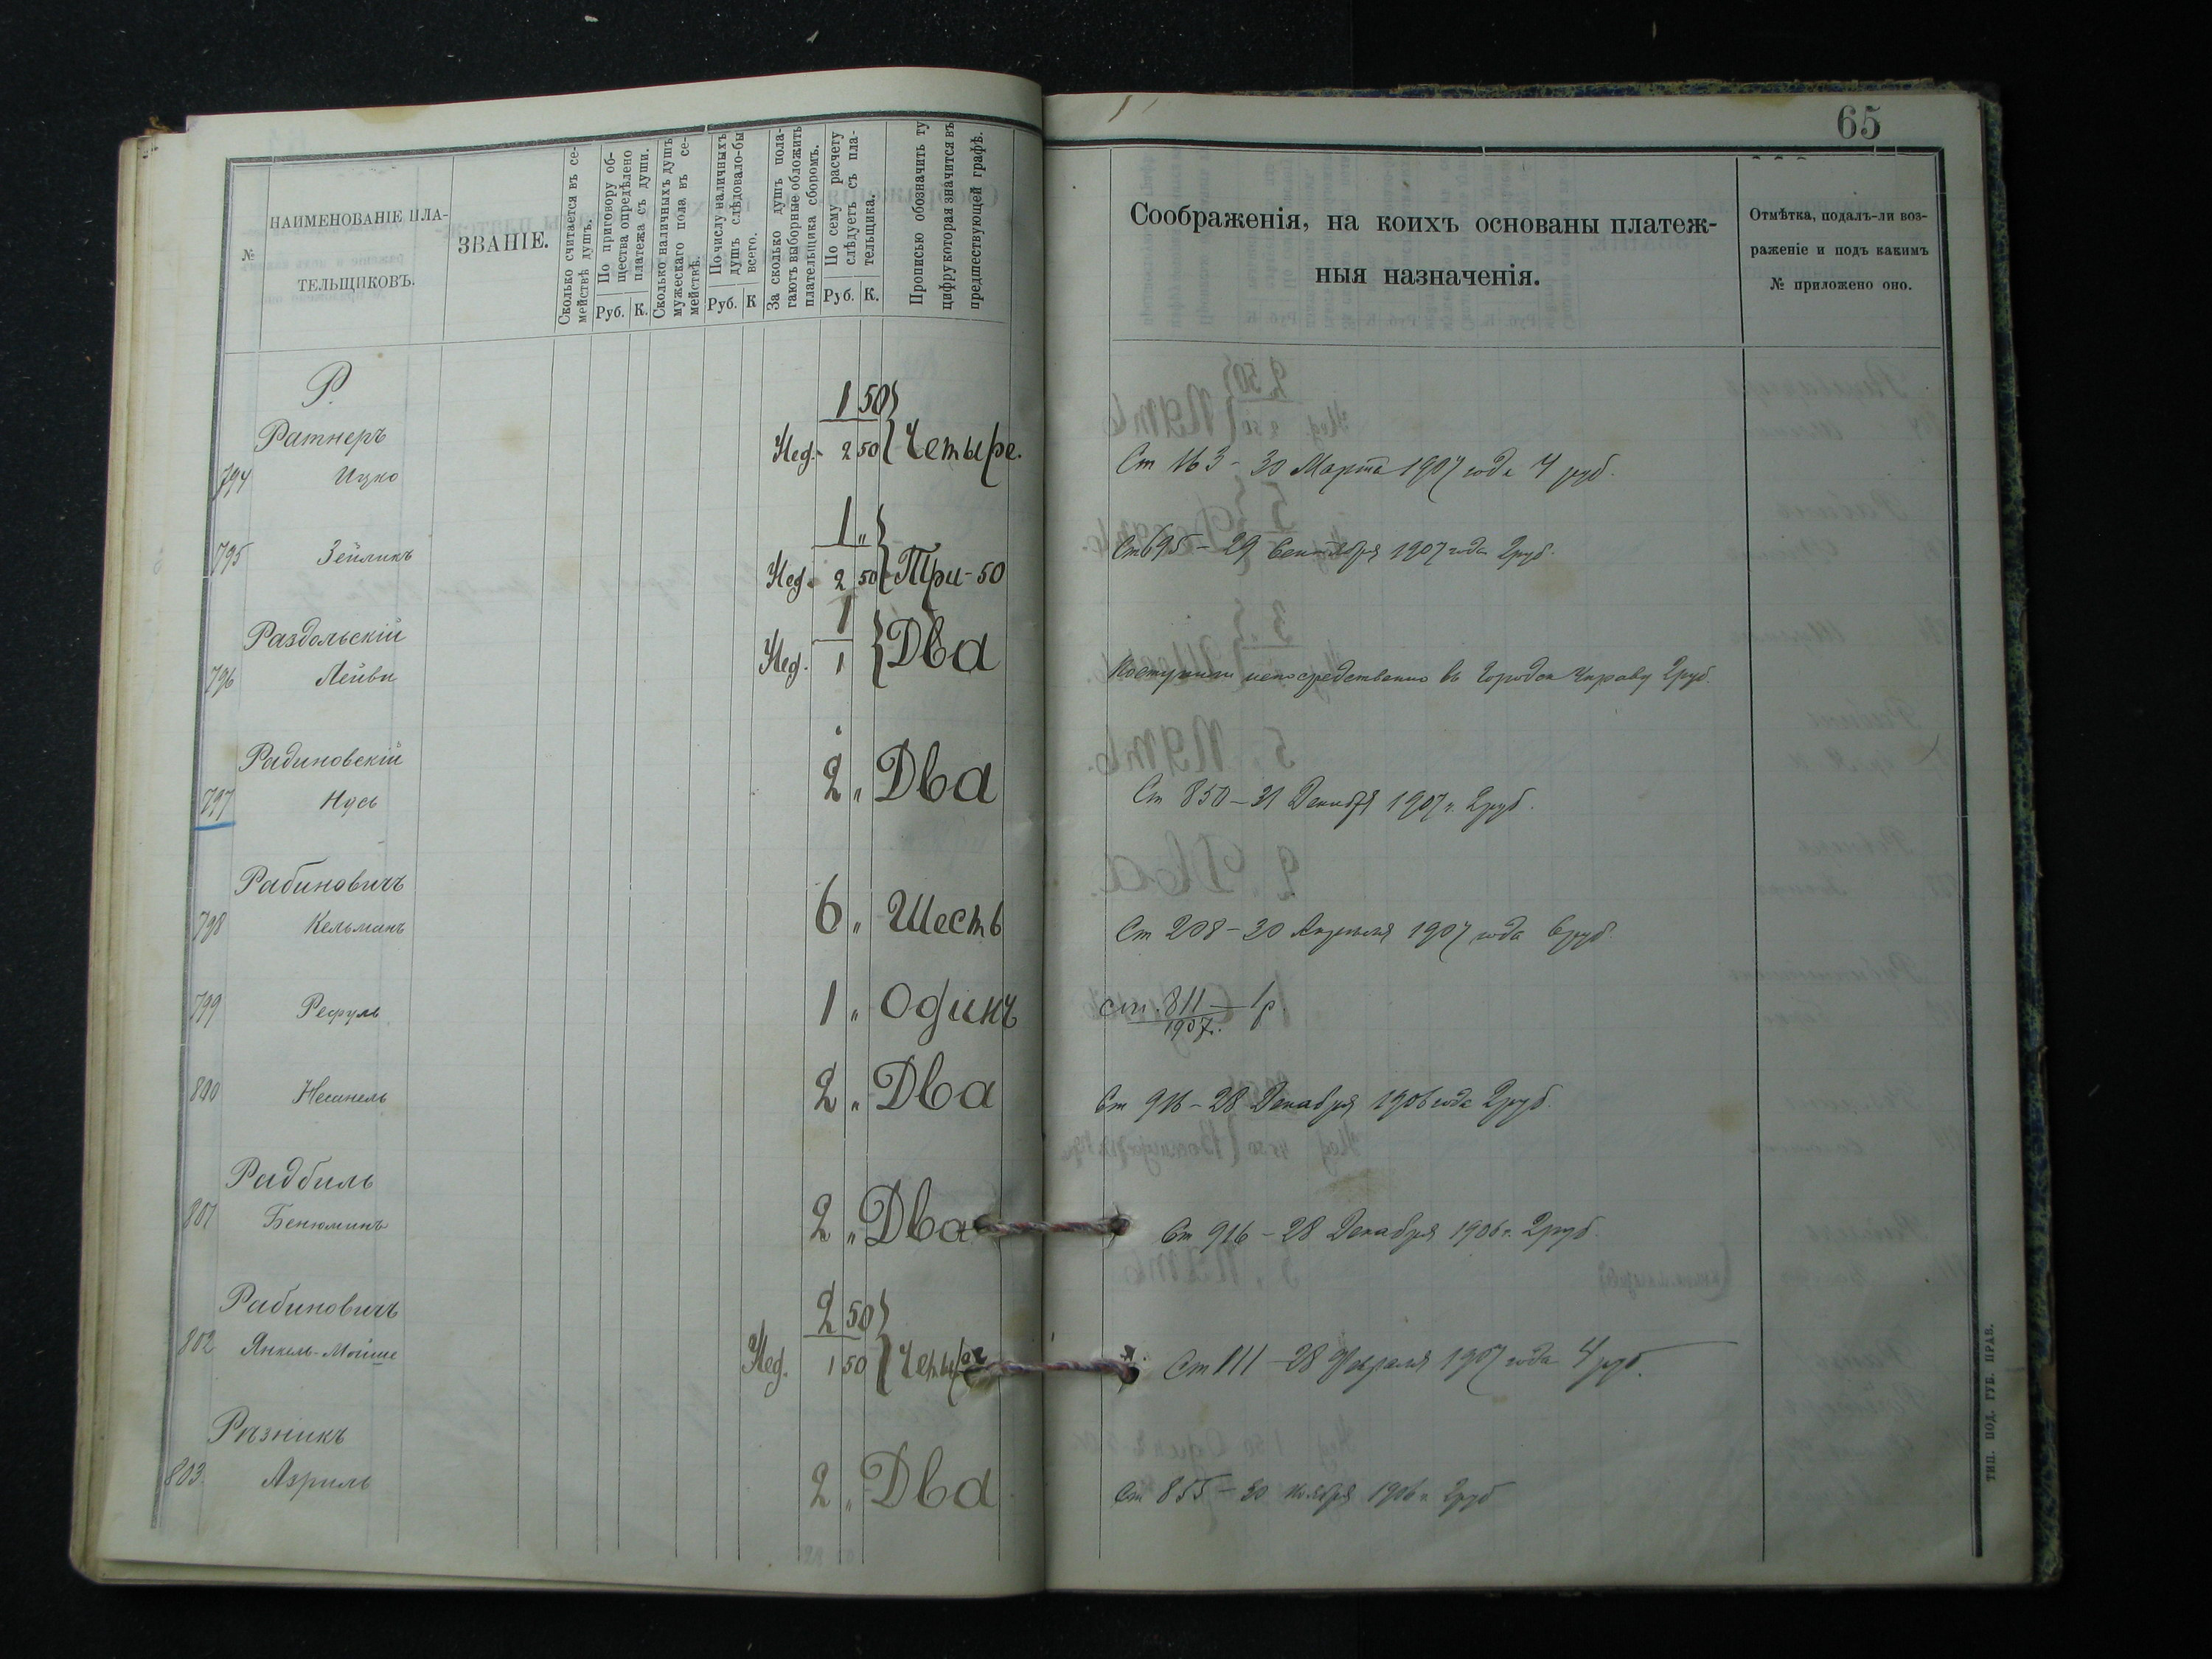 65
№
НАИМЕНОВАНІЕ ПЛА-
ТЕЛЬЩИКОВЪ.
ЗВАНІЕ.
Сколько считается въ се-
мействѣ душъ.
По приговору об-
щества опредѣлено
платежа съ души.
Руб. К.
Сколько наличныхъ душъ
мужескаго пола въ се-
мействѣ.
По числу наличныхъ
душъ слѣдовало-бы
всего.
Руб. К
За сколько душъ пола-
гаютъ выборные обложить
плательщика сборомъ.
По сему расчету
слѣдуетъ съ пла-
тельщика.
Руб. К.
Прописью обозначить ту
цифру которая значится въ
предшествующей графѣ.
Соображенія, на коихъ основаны платеж-
ныя назначенія.
Отмѣтка, подалъ-ли воз-
раженіе и подъ какимъ
№ приложено оно.
Р.
Ратнеръ
1 50
794 Ицко Нед. 2 50 Четыре. Ст 163 - 30 Марта 1907 года 4 руб.
1 "
795 Зейликъ Нед. 2 50 Три-50 Ст 695 - 29 Сентября 1907 года 2 руб.
Раздольскій
1
796 Лейви Нед. 1 Два непосредственно въ Городск Управу 2 руб.
Радиновскій
797 Нусь 2 " Два Ст 850 - 31 Декабря 1907 г. 2 руб.
Рабиновичъ
798 Кельманъ 6 " Шесть Ст 208 - 30 Апреля 1907 года 6 руб.
799 Рефуль 1 " Одинъ ст. 811 — 1 р.
1907 г.
800 2 " Два Ст 916 - 28 Декабря 1906 года 2 руб.
Радбиль
801 Бенюминъ 2 " Два Ст 916 - 28 Декабря 1906 г. 2 руб.
Рабиновичъ
2 50
802 Янкель-Мойше Нед. 1 50 Четыре Ст 111 - 28 Февраля 1907 года 4 руб.
Рѣзникъ
803 Азриль 2 " Два Ст 855 - 30 ноября 1906 г. 2 руб
ТИП. ПОД. ГУБ. ПРАВ.